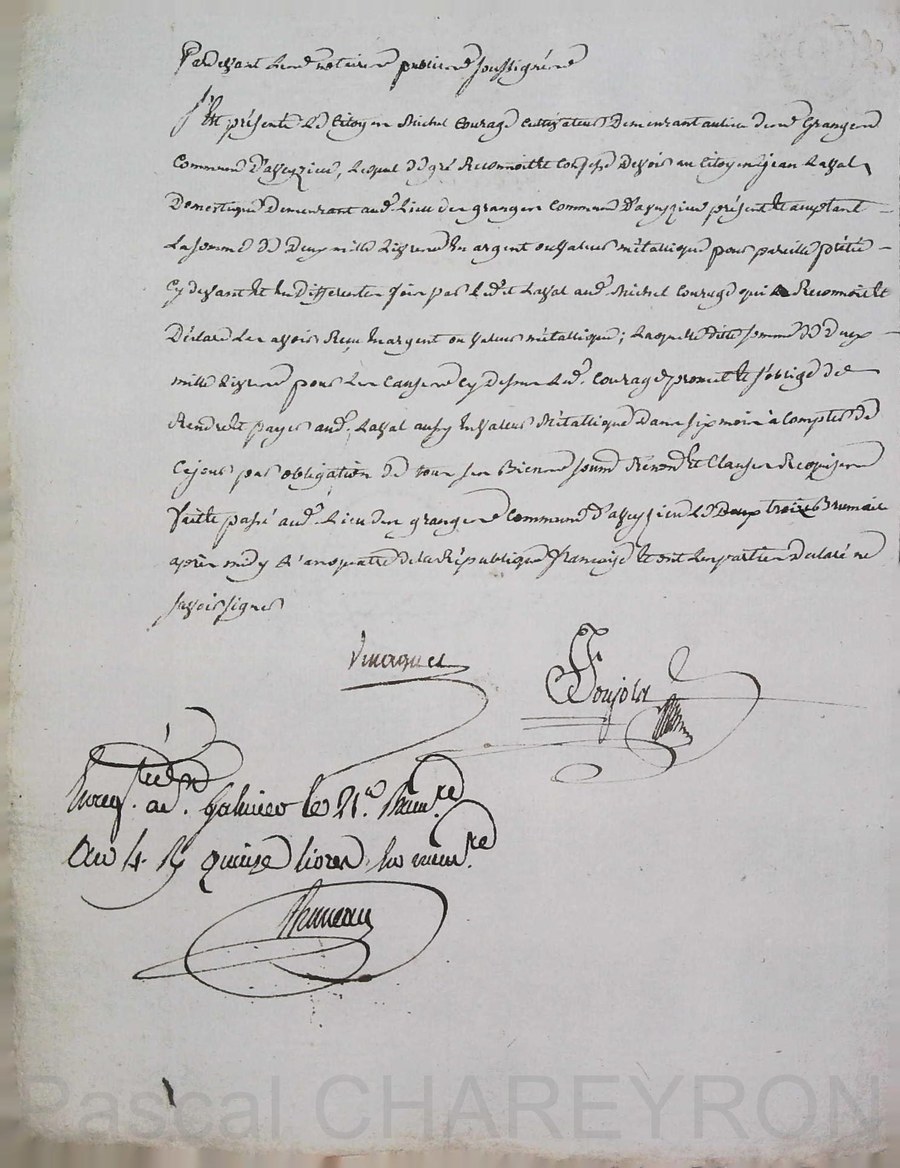 Pardevant les notaires publics soussignés
s'est présenté le Citoyen Michel Courage cultivateur demeurant au lieu des Granges
Commune d'aveyzieu, lequel de gré Reconnoit et confesse devoir au Citoyen jean Laval
Domestique demeurant aud. Lieu des granges commune d'aveyzieu présent et acceptant
La somme de deux mille Livres en argent ou valeur métallique pour pareille prétée
Cy devant et en differentes fois par led. Laval aud. Michel Courage qui Reconnoit et
Déclare les avoir Reçu en argent ou valeur métallique; Laquelle dite somme de deux
mille Livres pour les causes cy dessus led. Courage promet et s'oblige de
Rendre et payer aud. Laval aussy en valeur Métallique dans six mois à compter de
Ce jour par obligation de tous ses Biens soumis Renonc. et Clauses Requises
faitte passé aud. Lieu des granges commune d'aveyzieu le trois Brumaire
après midy L'an quatre de la République françoise et ont les parties déclaré ne
savoir signer
Enreg. à Galmier le 21e. Brum.re
an 4 R quinze livres en num.re
Pascal CHAREYRON